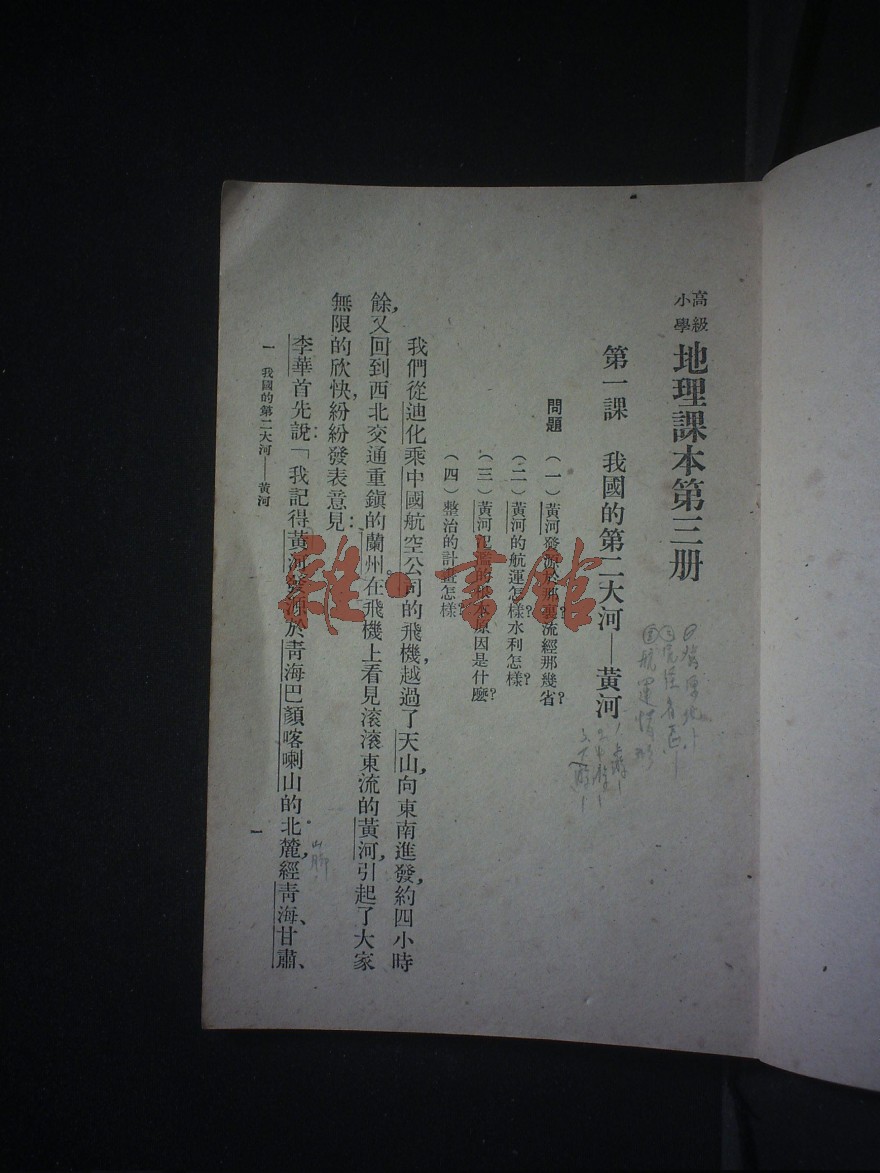 高級小學 地理課本第三册
第一課 我國的第二大河——黃河
問題 (一)黃河發源於那裏?流經那幾省?
(二)黃河的航運怎樣?水利怎樣?
(三)黃河氾濫的根本原因是什麼?
(四)整治的計畫怎樣?
我們從迪化乘中國航空公司的飛機,越過了天山,向東南進發,約四小時
餘,又回到西北交通重鎮的蘭州。在飛機上看見滾滾東流的黃河,引起了大家
無限的欣快,紛紛發表意見:
李華首先說:「我記得黃河發源於青海巴顏喀喇山的北麓,經青海、甘肅、
山脚
一 我國的第二大河——黃河
一
書館